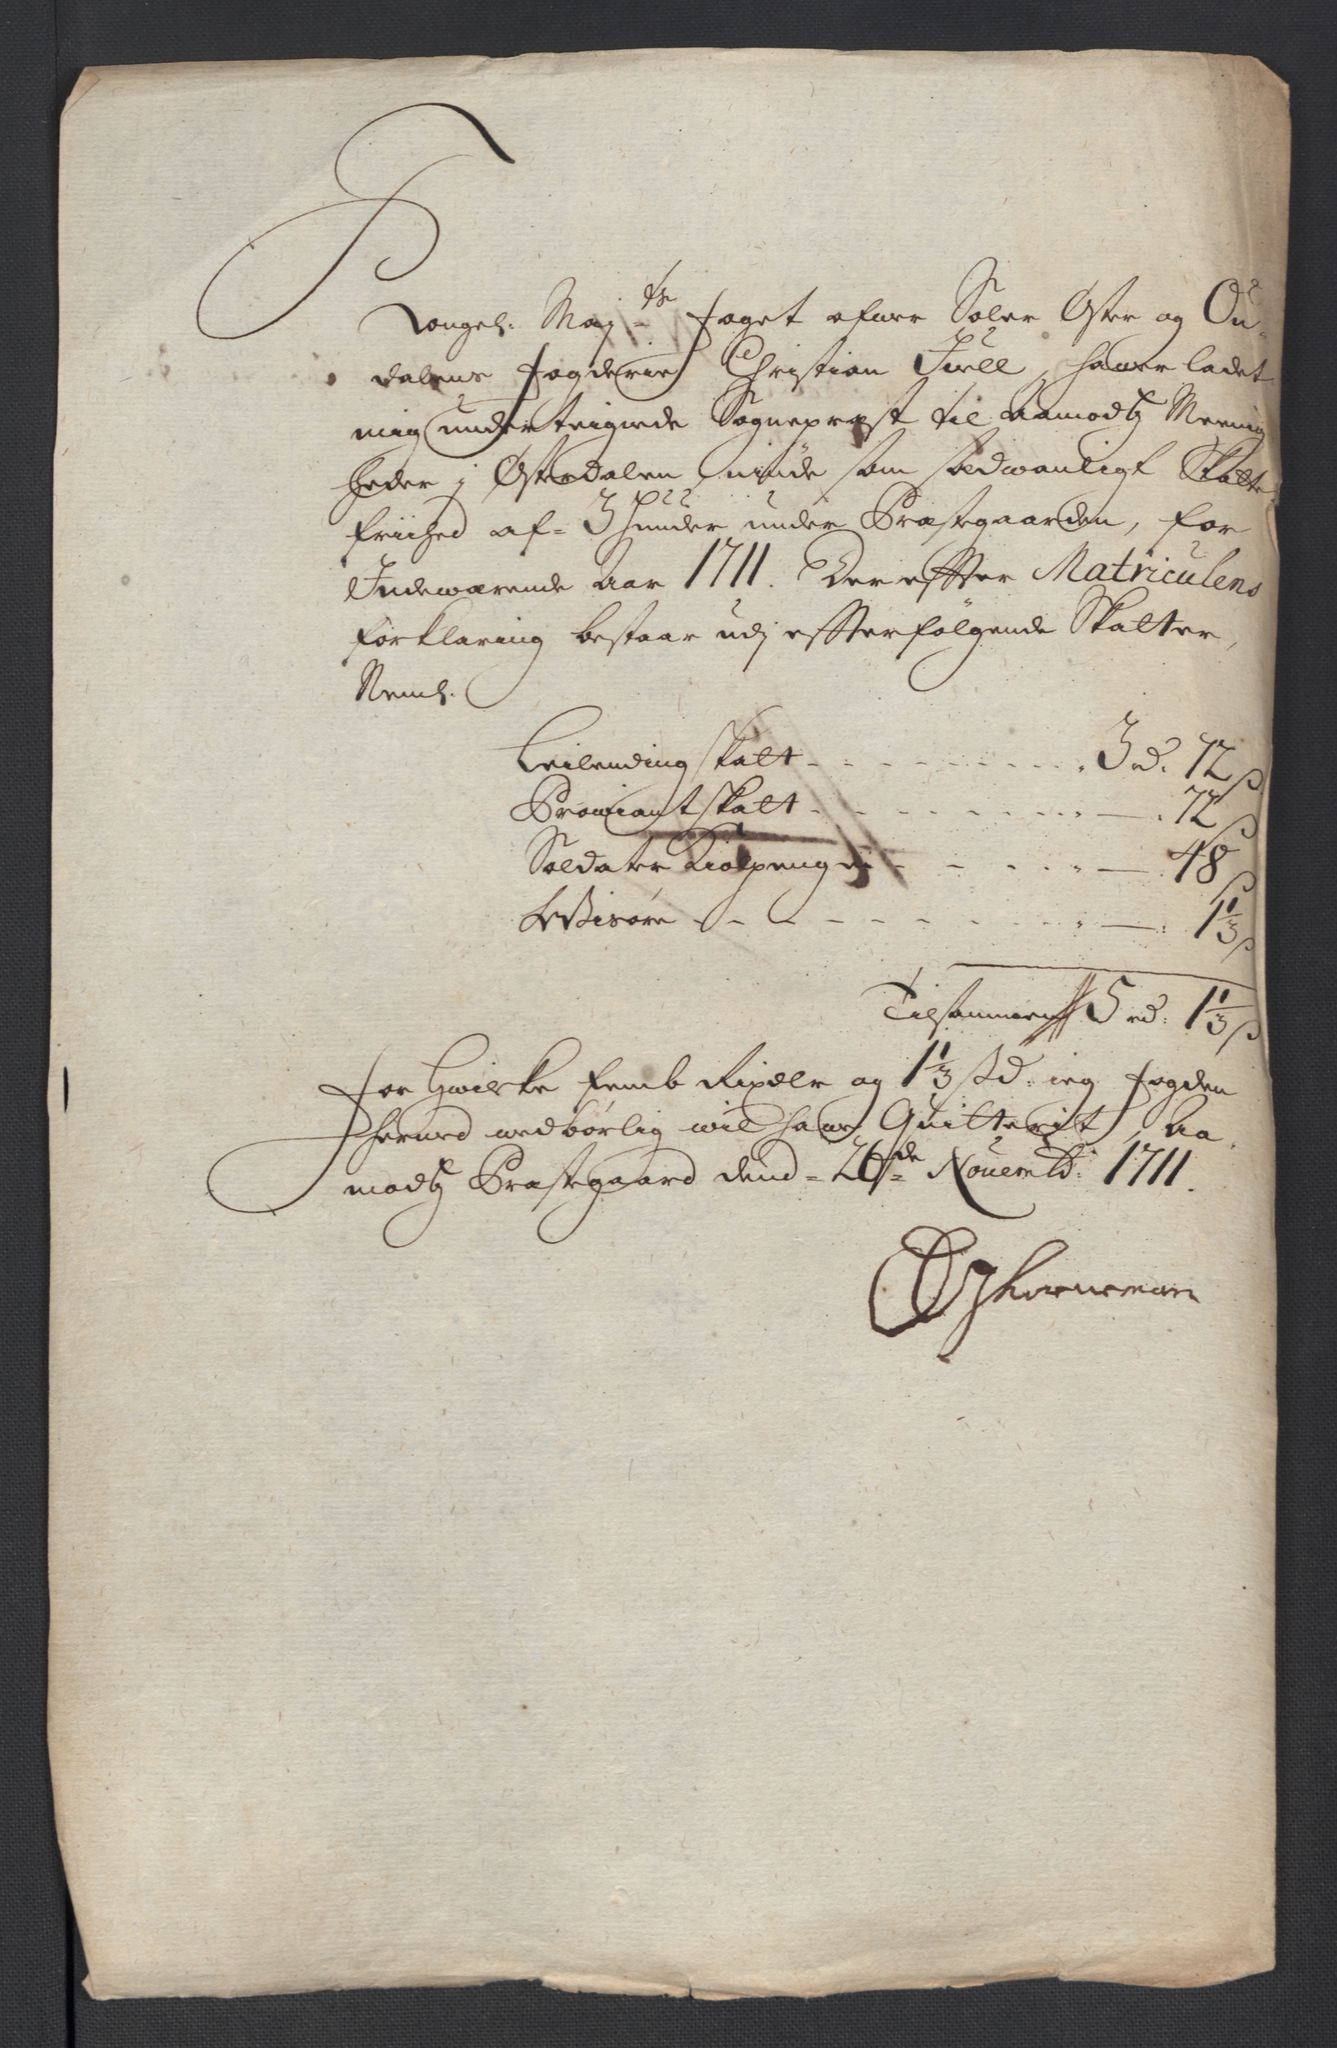 Kongel: May:ts foget ofwer Soløer Øster og Ou-
dalens fogderie Christian Juell, hawer ladet
mig underteignede Sogneprest til Aamodtz Meenig
heder j Østerdalen niude som sædwanligt Skatte-
friihed af 3 Hunder under Præstegaarden, for
Indewærende Aar 1711. Der effter Matriculens
forklaring bestaar udj effterfølgende Skatter,
Neml:
Leilending skatt - - - 3 rd. 72 ß
Prowiant skatt - - - 72 ß
Soldater Kiolpenge - - - 48 ß
Wisøre - - - 1⅓ ß
Tilsammen 5 rd: 1⅓ ß
for Hwilke femb Rixdlr og 1⅓ ßd: ieg fogden
herwed wedbørlig wil hawe Quitterit, Aa-
modtz Præstegaard dend 26de Nouemb: 1711.
Horneman